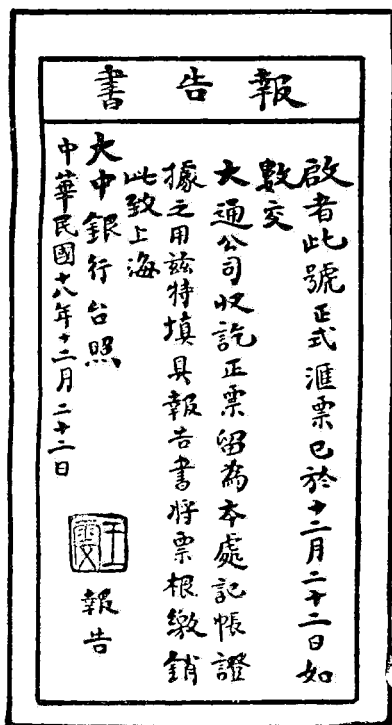 報告書
啟者此號正式滙票已於十二月二十二日如
數交
大通公司收訖正票留為本處記帳證
據之用茲特填具報告書將票根繳銷
此致上海
大中銀行台照
中華民國十八年十二月二十二日
王雯
報告